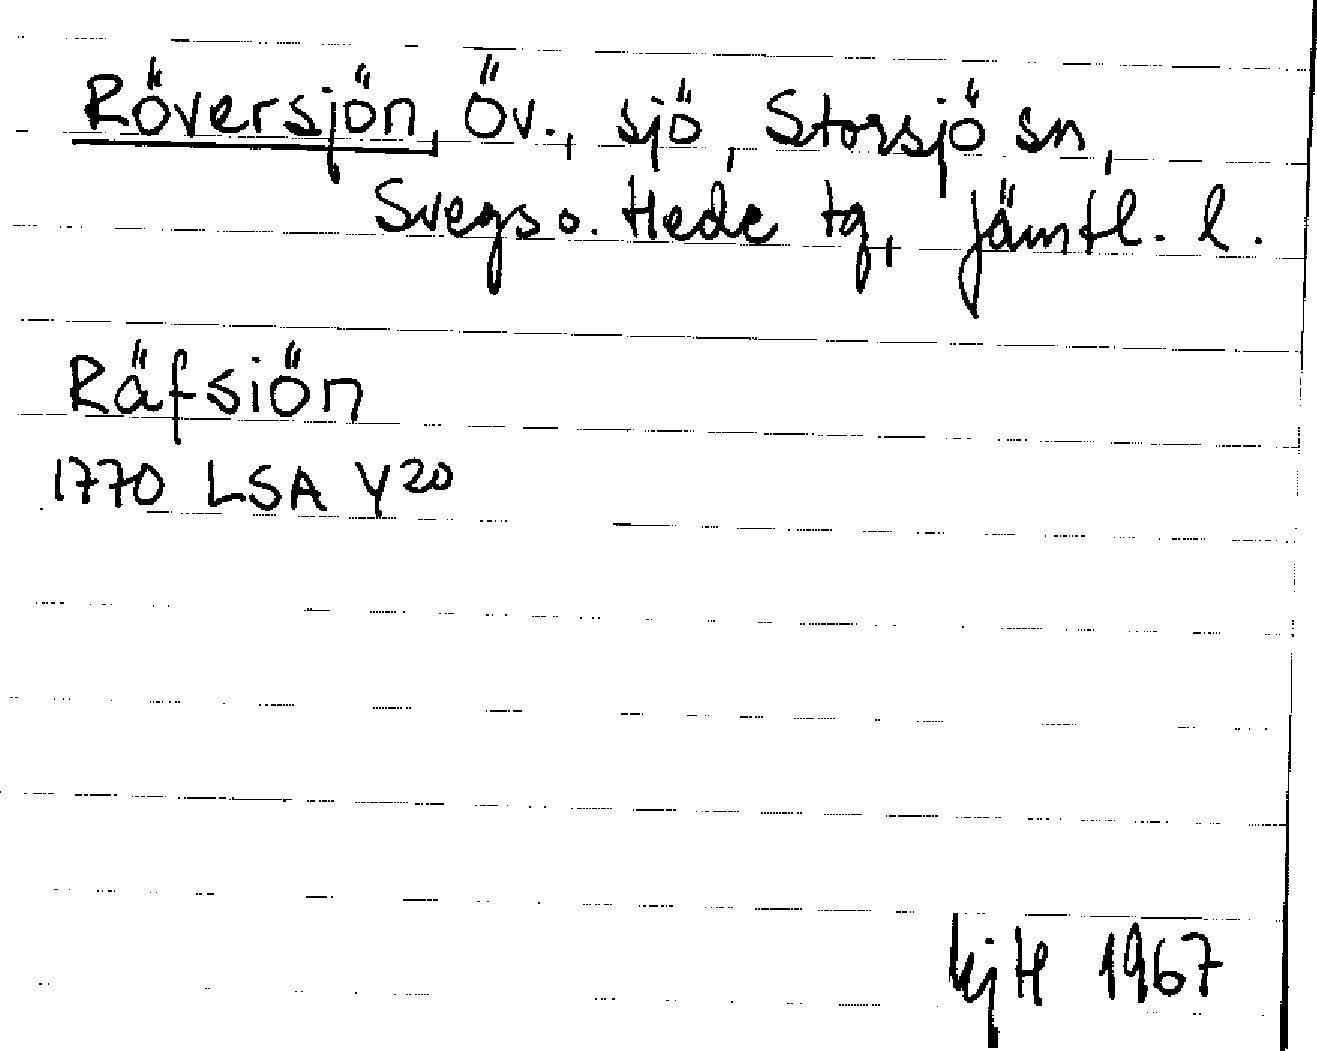 Röversjön, Öv., sjö, Storsjö sn,
Svegs o. Hede tg, Jämtl. l.
Räfsiön
1770 LSA Y20
kjH 1967